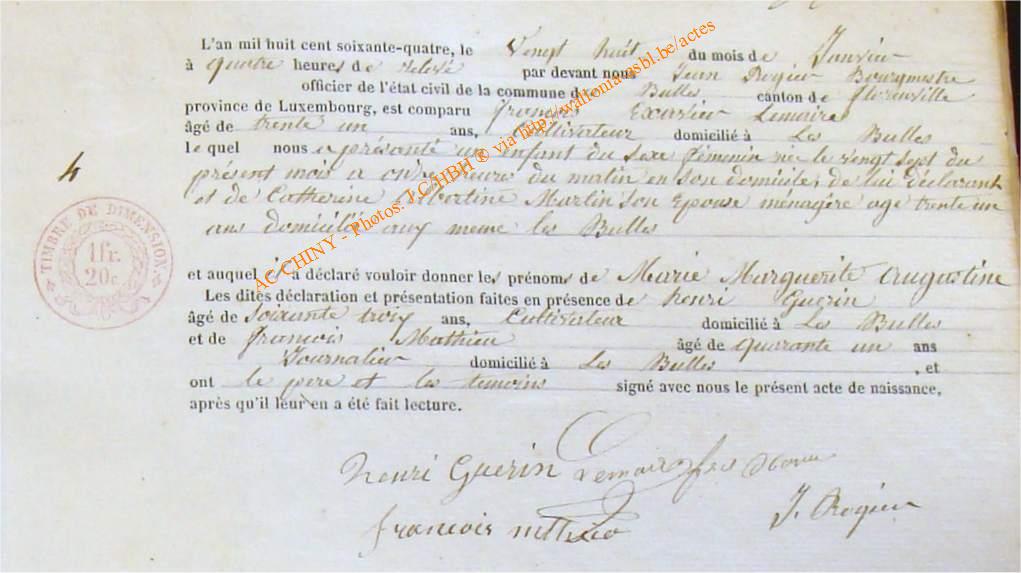 L'an mil huit cent soixante-quatre, le Vengt huit du mois de Janvier
à quatre heures de relevé par devant nous Jean Rogier Bourgmestre
officier de l'état civil de la commune des Bulles canton de Florenville
province de Luxembourg, est comparu François Lemaire
âgé de trente un ans, Cultivateur domicilié à Les Bulles
le quel nous a présanté un enfant du sexe féminin née le vingt sept du
présent mois a onze heure du matin en son domicile, de lui déclarant
et de Catherine Albertine Marlin son Epouse ménagère agé trente un
ans domicilié aux meme les Bulles
4
TIMBRE DE DIMENSION.
1fr.
20c.
et auquel il a déclaré vouloir donner les prénoms de Marie Marguerite Augustine
Les dites déclaration et présentation faites en présence de henri Guerin
âgé de soixante troix ans, Cultivateur domicilié à Les Bulles
et de françois Mathieu âgé de quarante un ans
Journalier domicilié à Les Bulles , et
ont le père et les temoins signé avec nous le présent acte de naissance,
après qu'il leur en a été fait lecture.
henri Guerin Lemaire
francois J. Rogier
AC CHINY - Photos: J.C HBH ® via http://wallonia-asbl.be/actes